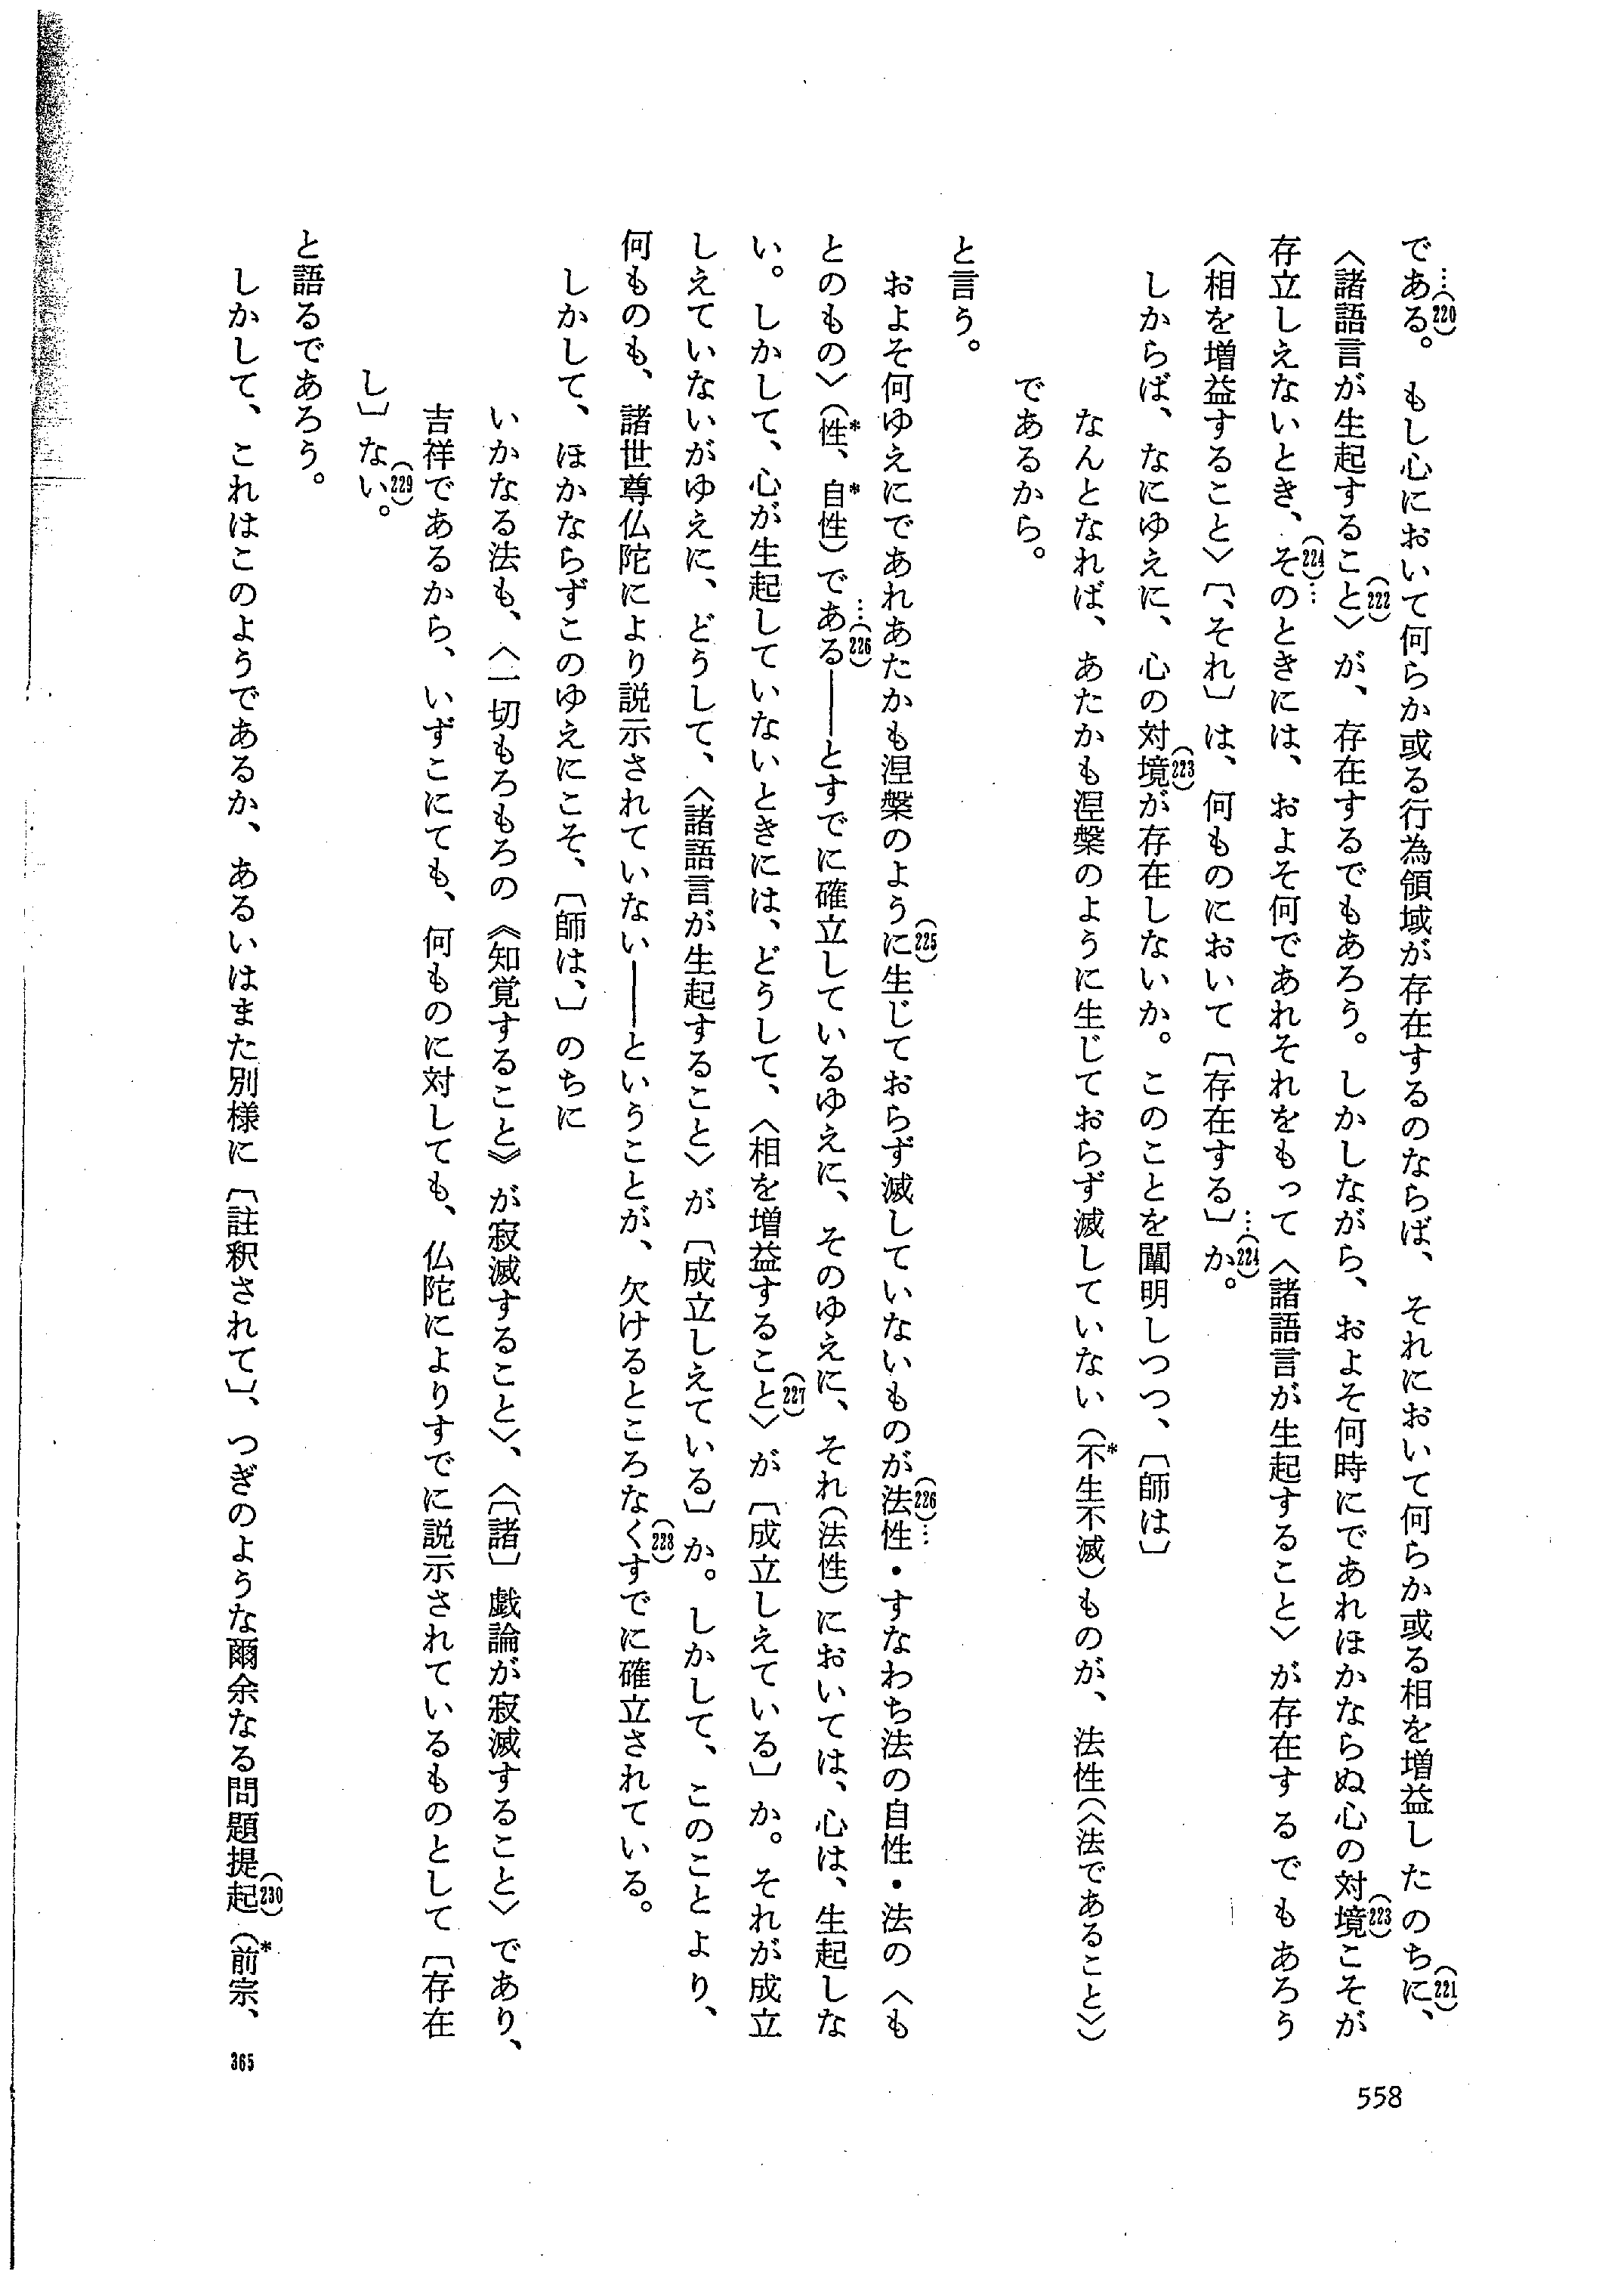 である。…(220) もし心において何らか或る行為領域が存在するのならば、それにおいて何らか或る相を増益したのちに、(221)
〈諸語言が生起すること〉(222)が、存在するでもあろう。しかしながら、およそ何時にであれほかならぬ心の対境(223)こそが
存立しえないとき、(224)…そのときには、およそ何であれそれをもって〈諸語言が生起すること〉が存在するでもあろう
〈相を増益すること〉〔、それ〕は、何ものにおいて〔存在する〕…(224)か。
しからば、なにゆえに、心の対境(223)が存在しないか。このことを闡明しつつ、〔師は〕
なんとなれば、あたかも涅槃のように生じておらず滅していない(不*生不滅)ものが、法性(〈法であること〉)
であるから。
と言う。
およそ何ゆえにであれあたかも涅槃のように(225)生じておらず滅していないものが(226)…法性・すなわち法の自性・法の〈も
とのもの〉(性*、自*性)である…(226)――とすでに確立しているゆえに、そのゆえに、それ(法性)においては、心は、生起しな
い。しかして、心が生起していないときには、どうして、〈相を増益すること〉(227)が〔成立しえている〕か。それが成立
しえていないがゆえに、どうして、〈諸語言が生起すること〉が〔成立しえている〕か。しかして、このことより、
何ものも、諸世尊仏陀により説示されていない――ということが、欠けるところなく(228)すでに確立されている。
しかして、ほかならずこのゆえにこそ、〔師は、〕のちに
いかなる法も、〈一切もろもろの《知覚すること》が寂滅すること〉、〈〔諸〕戯論が寂滅すること〉であり、
吉祥であるから、いずこにても、何ものに対しても、仏陀によりすでに説示されているものとして〔存在
し〕ない(229)。
と語るであろう。
しかして、これはこのようであるか、あるいはまた別様に〔註釈されて〕、つぎのような爾余なる問題提起(230)(前*宗、
365
558